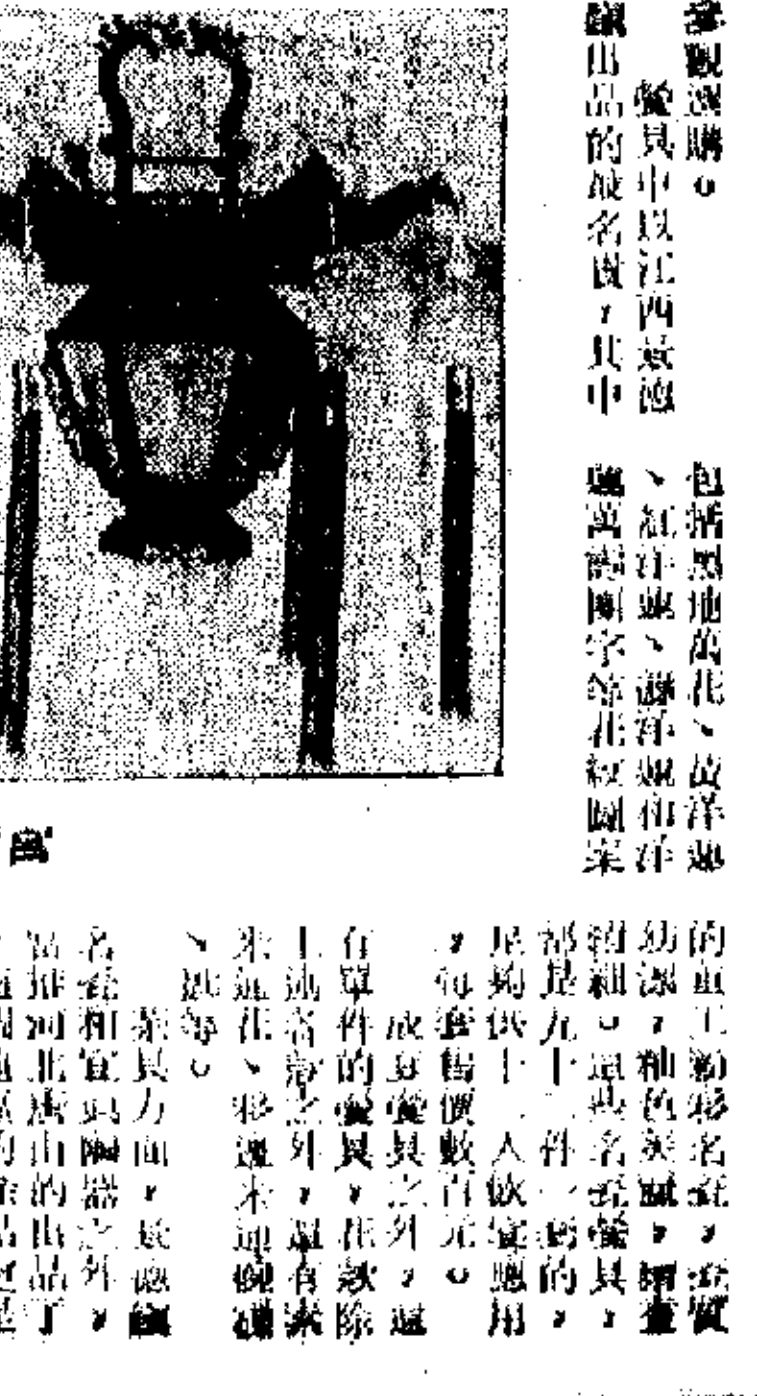 參觀選購。
餐具中以江西景德
鎮出品的最名貴，其中
包括黑地萬花、黃洋蓮
、紅洋蓮、綠洋蓮和洋
蓮萬壽團字等花紋圖案
的重工粉彩名瓷，瓷質
幼潔，釉色炎膩，繪畫
精細。這些名瓷餐具，
都是九十二件一套的，
足夠供十二人飲宴應用
，每套售價數百元。
成套餐具之外，還
有單件的餐具，花款除
上述各款之外，還有素
米通花、彩邊米通碗碟
、匙等。
茶具方面，景德鎮
名瓷和宜興陶器之外，
河北唐山的出品